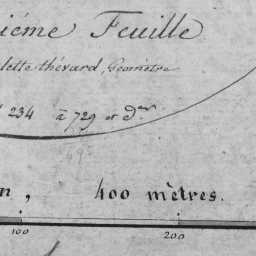 ième Feuille
lette thévard, Géomètre
234 à 729 et der
n, 400 mètres.
100 200